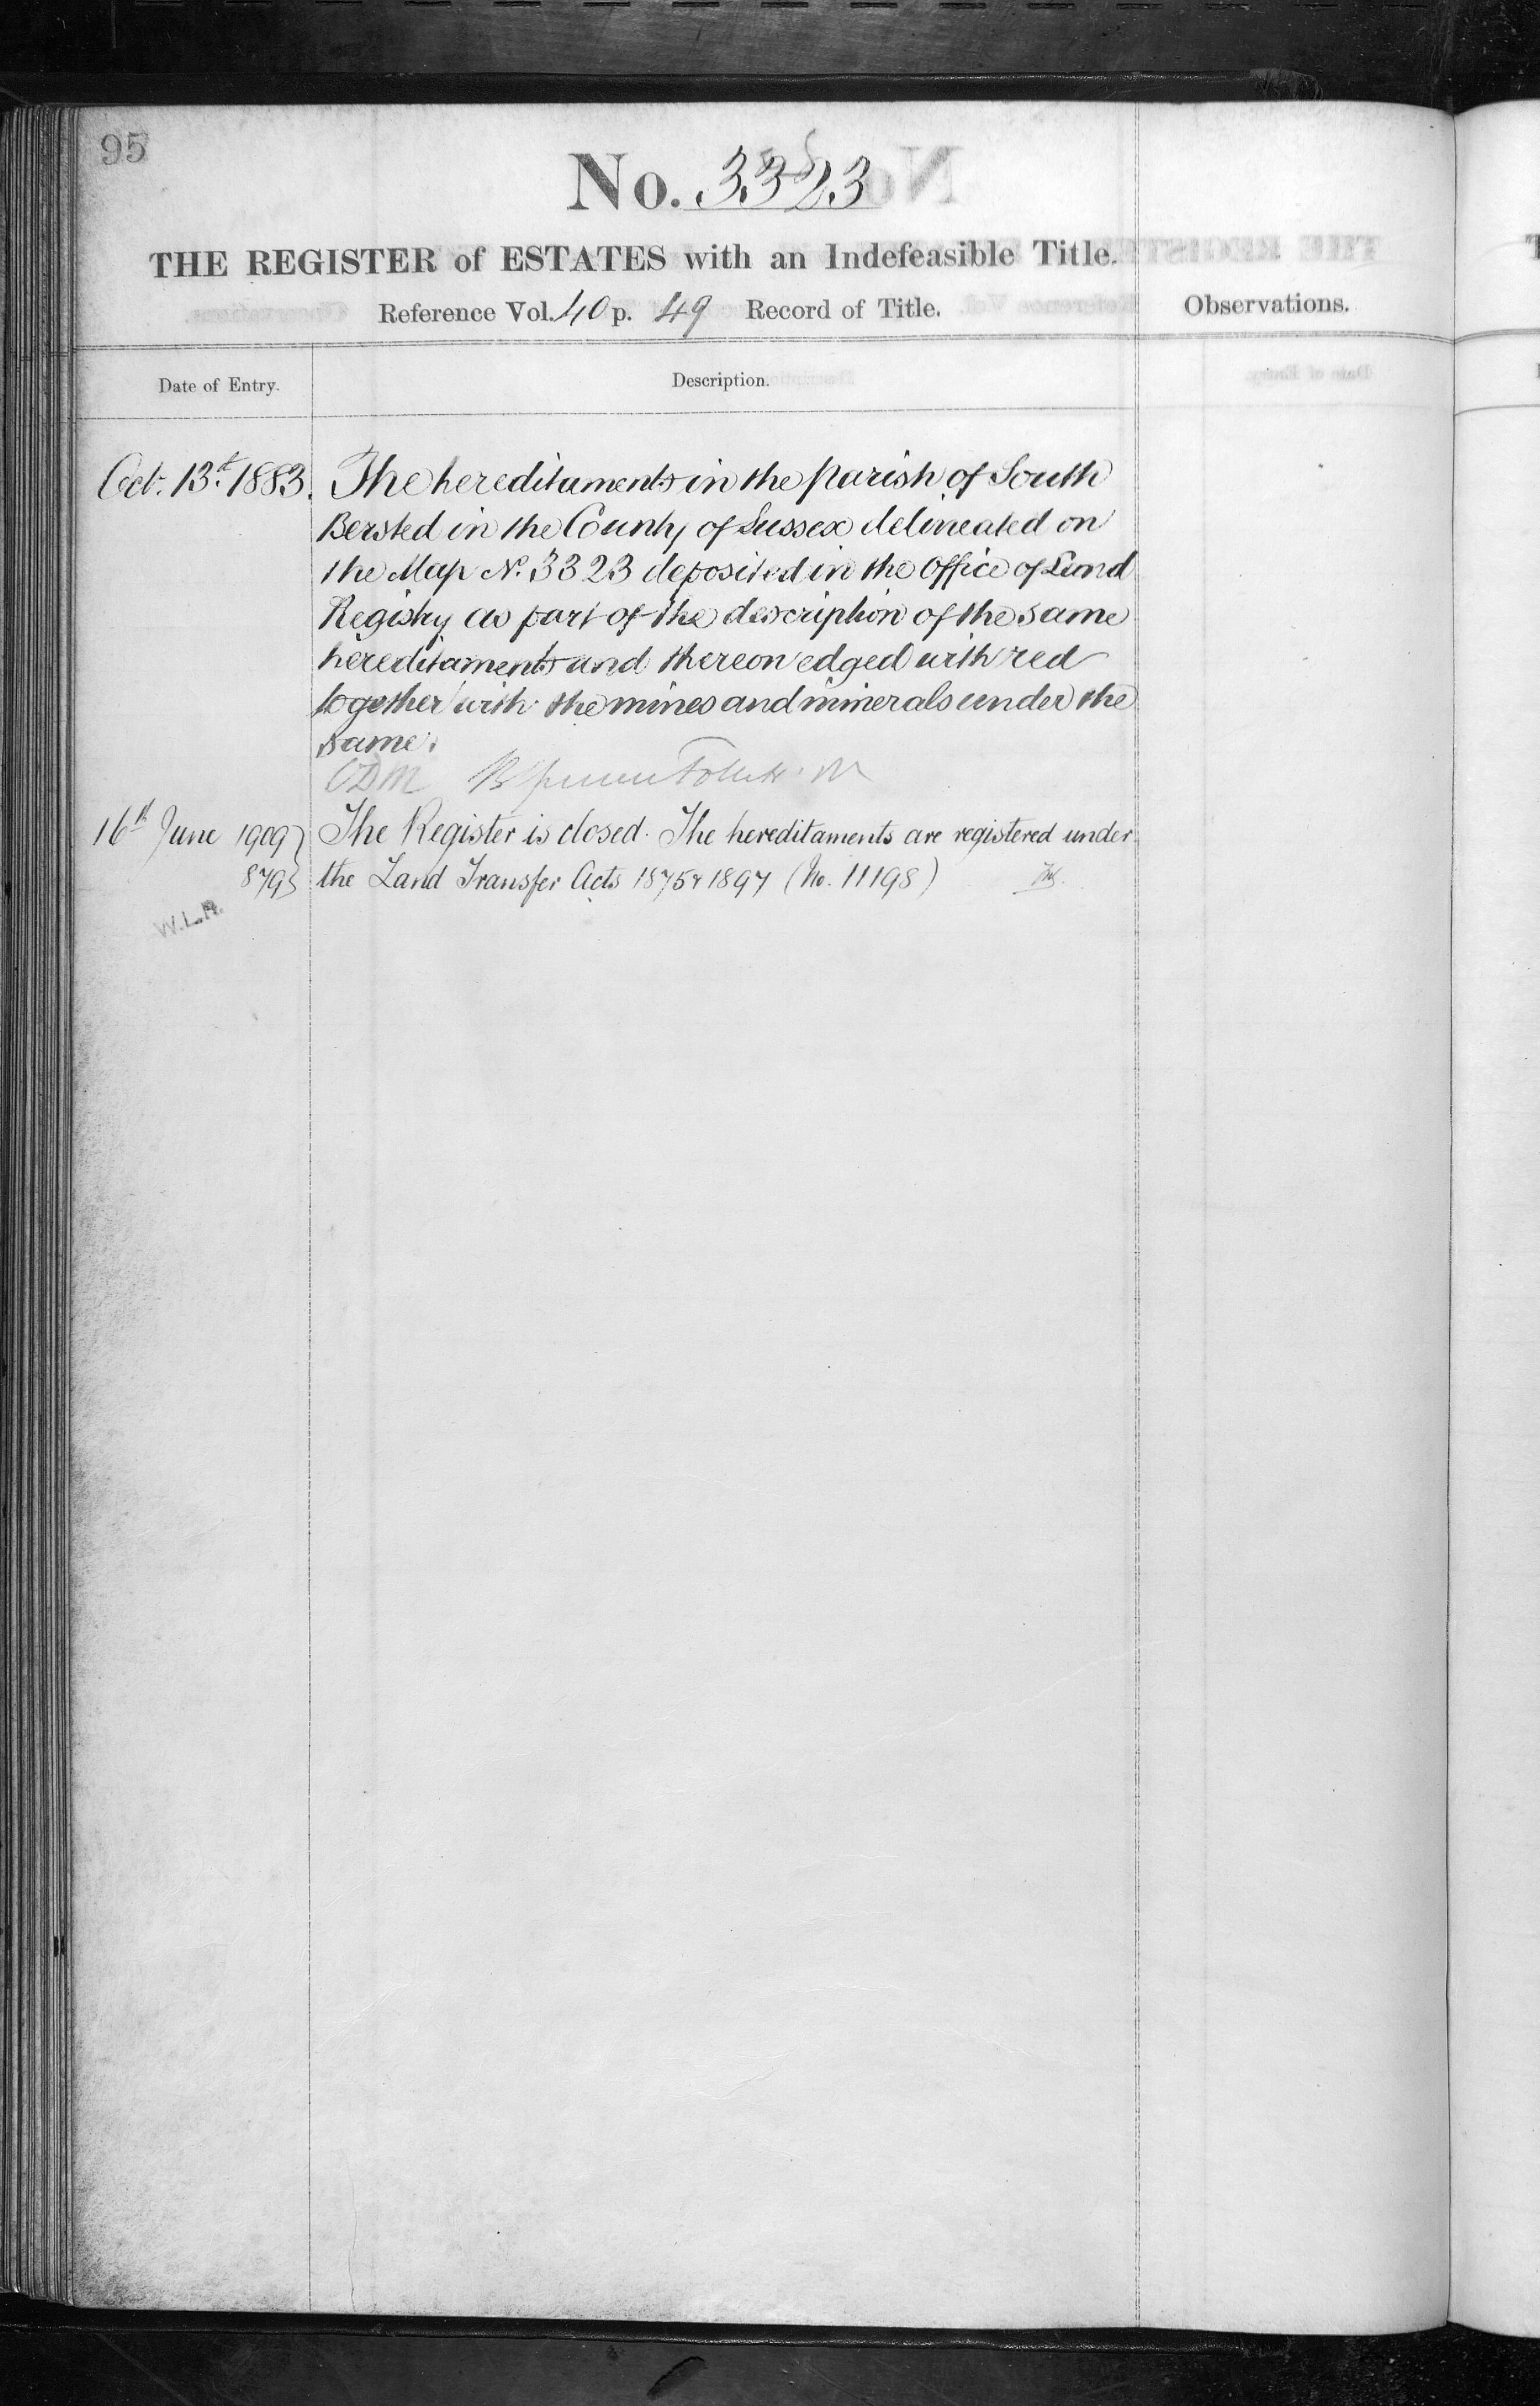 95
No. 3323
THE REGISTER of ESTATES with an Indefeasible Title.
Reference Vol. 40 p. 49 Record of Title.
Observations.
Date of Entry.
Description.
Oct. 13th 1883. The hereditaments in the parish of South
Bersted in the County of Sussex delineated on
the Map No. 3323 deposited in the Office of Land
Registry as part of the description of the same
hereditaments and thereon edged with red
together with the mines and minerals under the
same.
16th June 1909 The Register is closed. The hereditaments are registered under
879 the Land Transfer Acts 1875 & 1897 (No. 11198)
W.L.R.